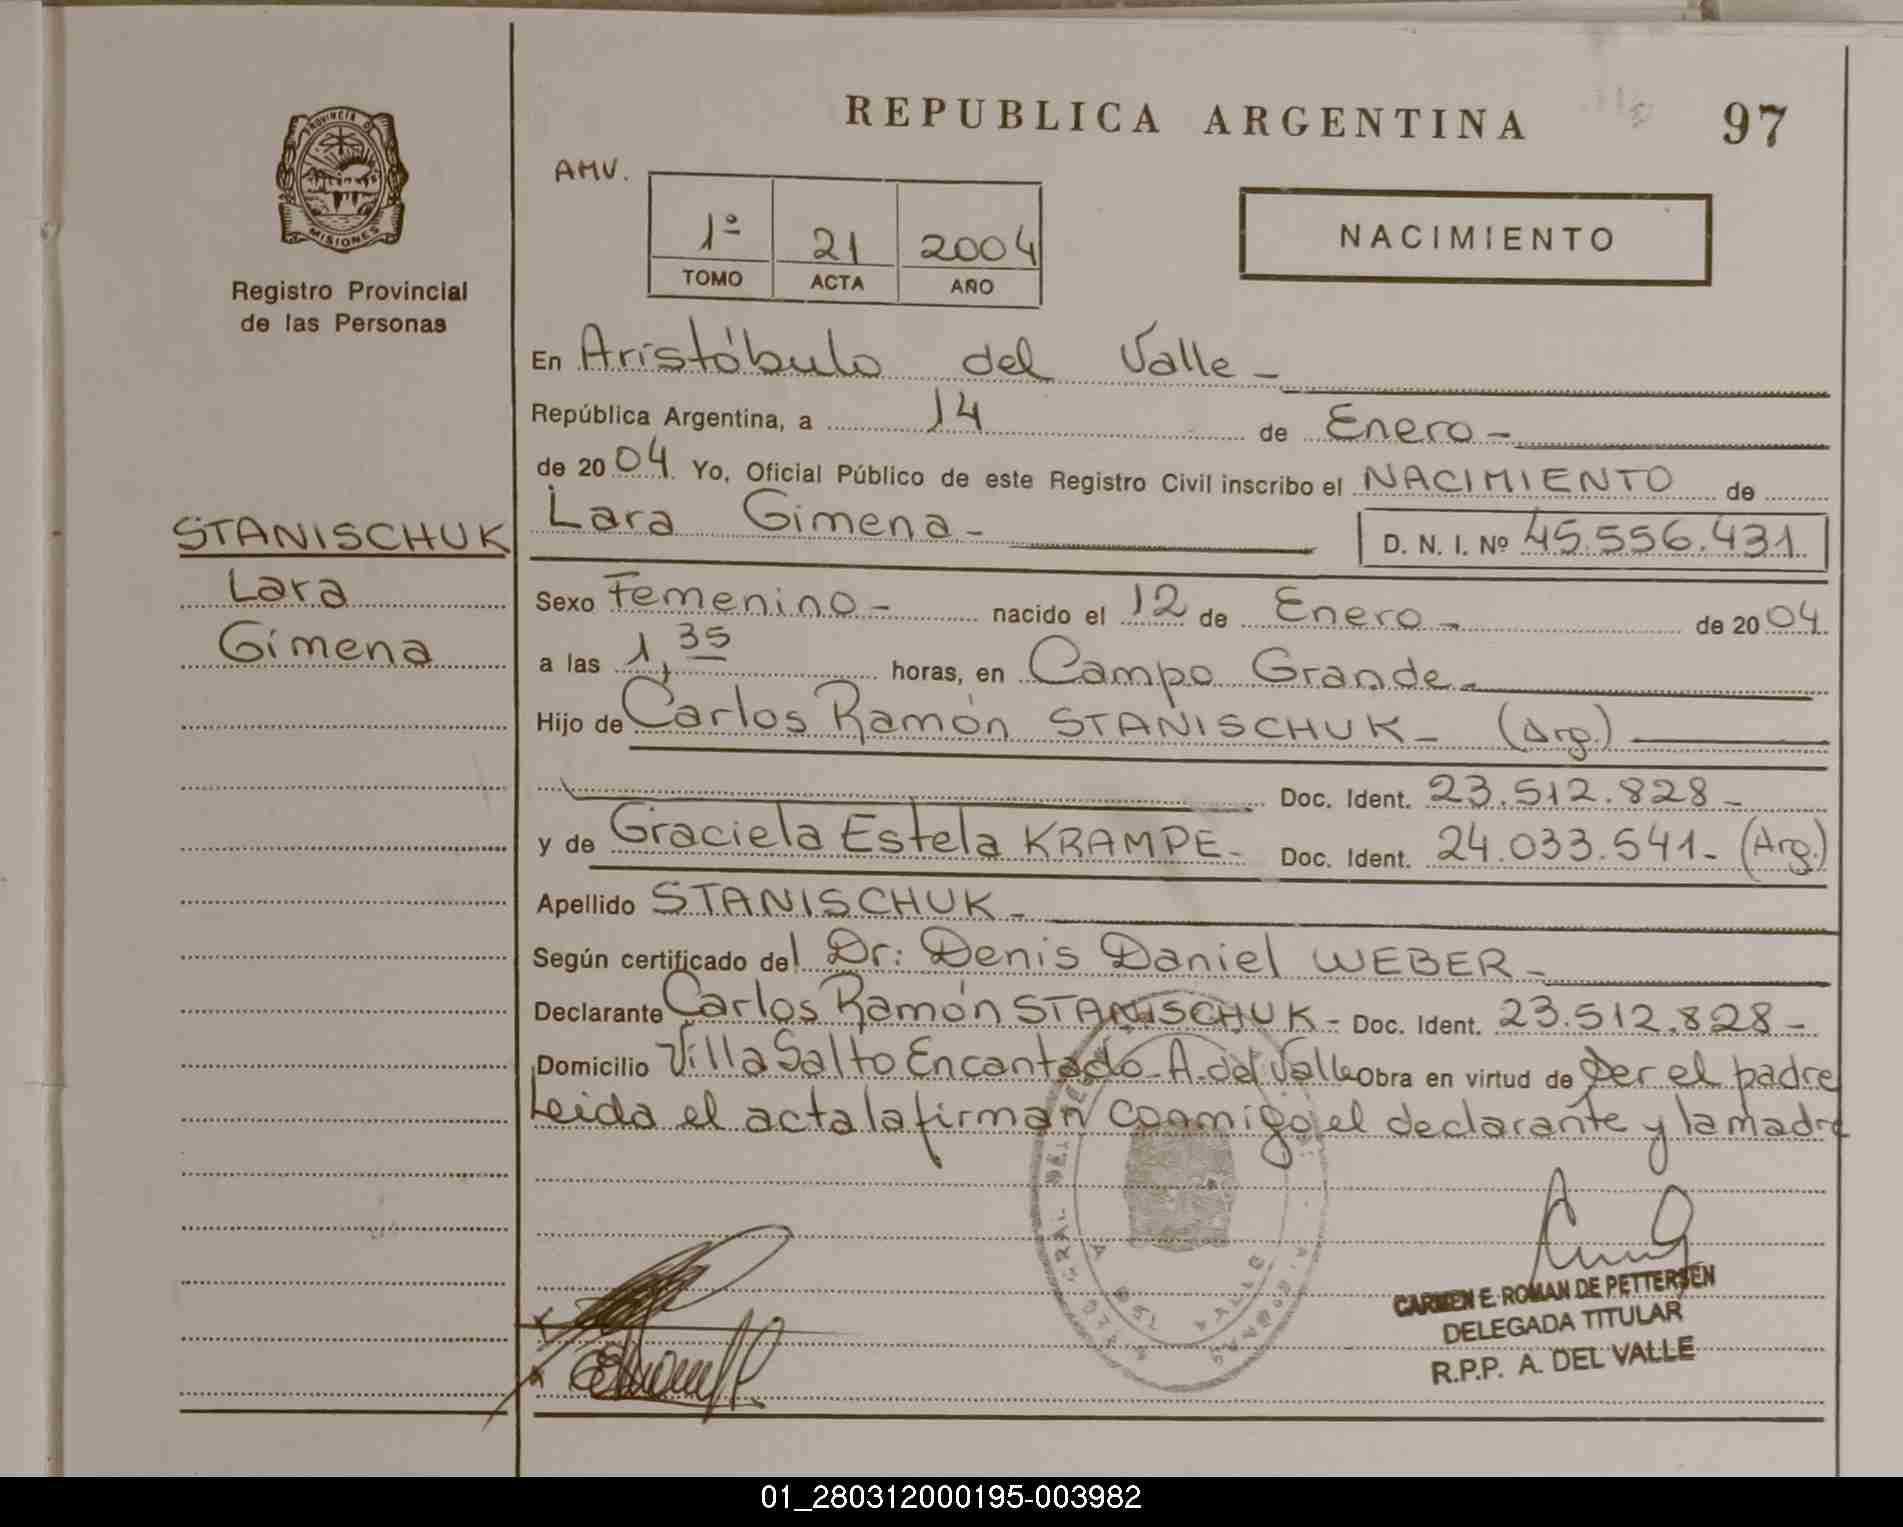 REPUBLICA ARGENTINA 97
PROVINCIA DE
MISIONES
Registro Provincial
de las Personas
AMV.
1º 21 2004
TOMO ACTA AÑO
NACIMIENTO
En Aristóbulo del Valle -
República Argentina, a 14 de Enero -
de 2004. Yo, Oficial Público de este Registro Civil inscribo el NACIMIENTO de
STANISCHUK
Lara
Gimena
Lara Gimena - D. N. I. Nº 45.556.431
Sexo Femenino - nacido el 12 de Enero - de 2004
a las 1,35 horas, en Campo Grande -
Hijo de Carlos Ramón STANISCHUK - (Arg.)
Doc. Ident. 23.512.828 -
y de Graciela Estela KRAMPE - Doc. Ident. 24.033.541 - (Arg.)
Apellido STANISCHUK -
Según certificado del Dr: Denis Daniel WEBER -
Declarante Carlos Ramón STANISCHUK - Doc. Ident. 23.512.828 -
Domicilio Villa Salto Encantado - A. del Valle Obra en virtud de Ser el padre
Leida el acta la firman conmigo el declarante y la madre
CARMEN E. ROMAN DE PETTERSEN
DELEGADA TITULAR
R.P.P. A. DEL VALLE
01_280312000195-003982